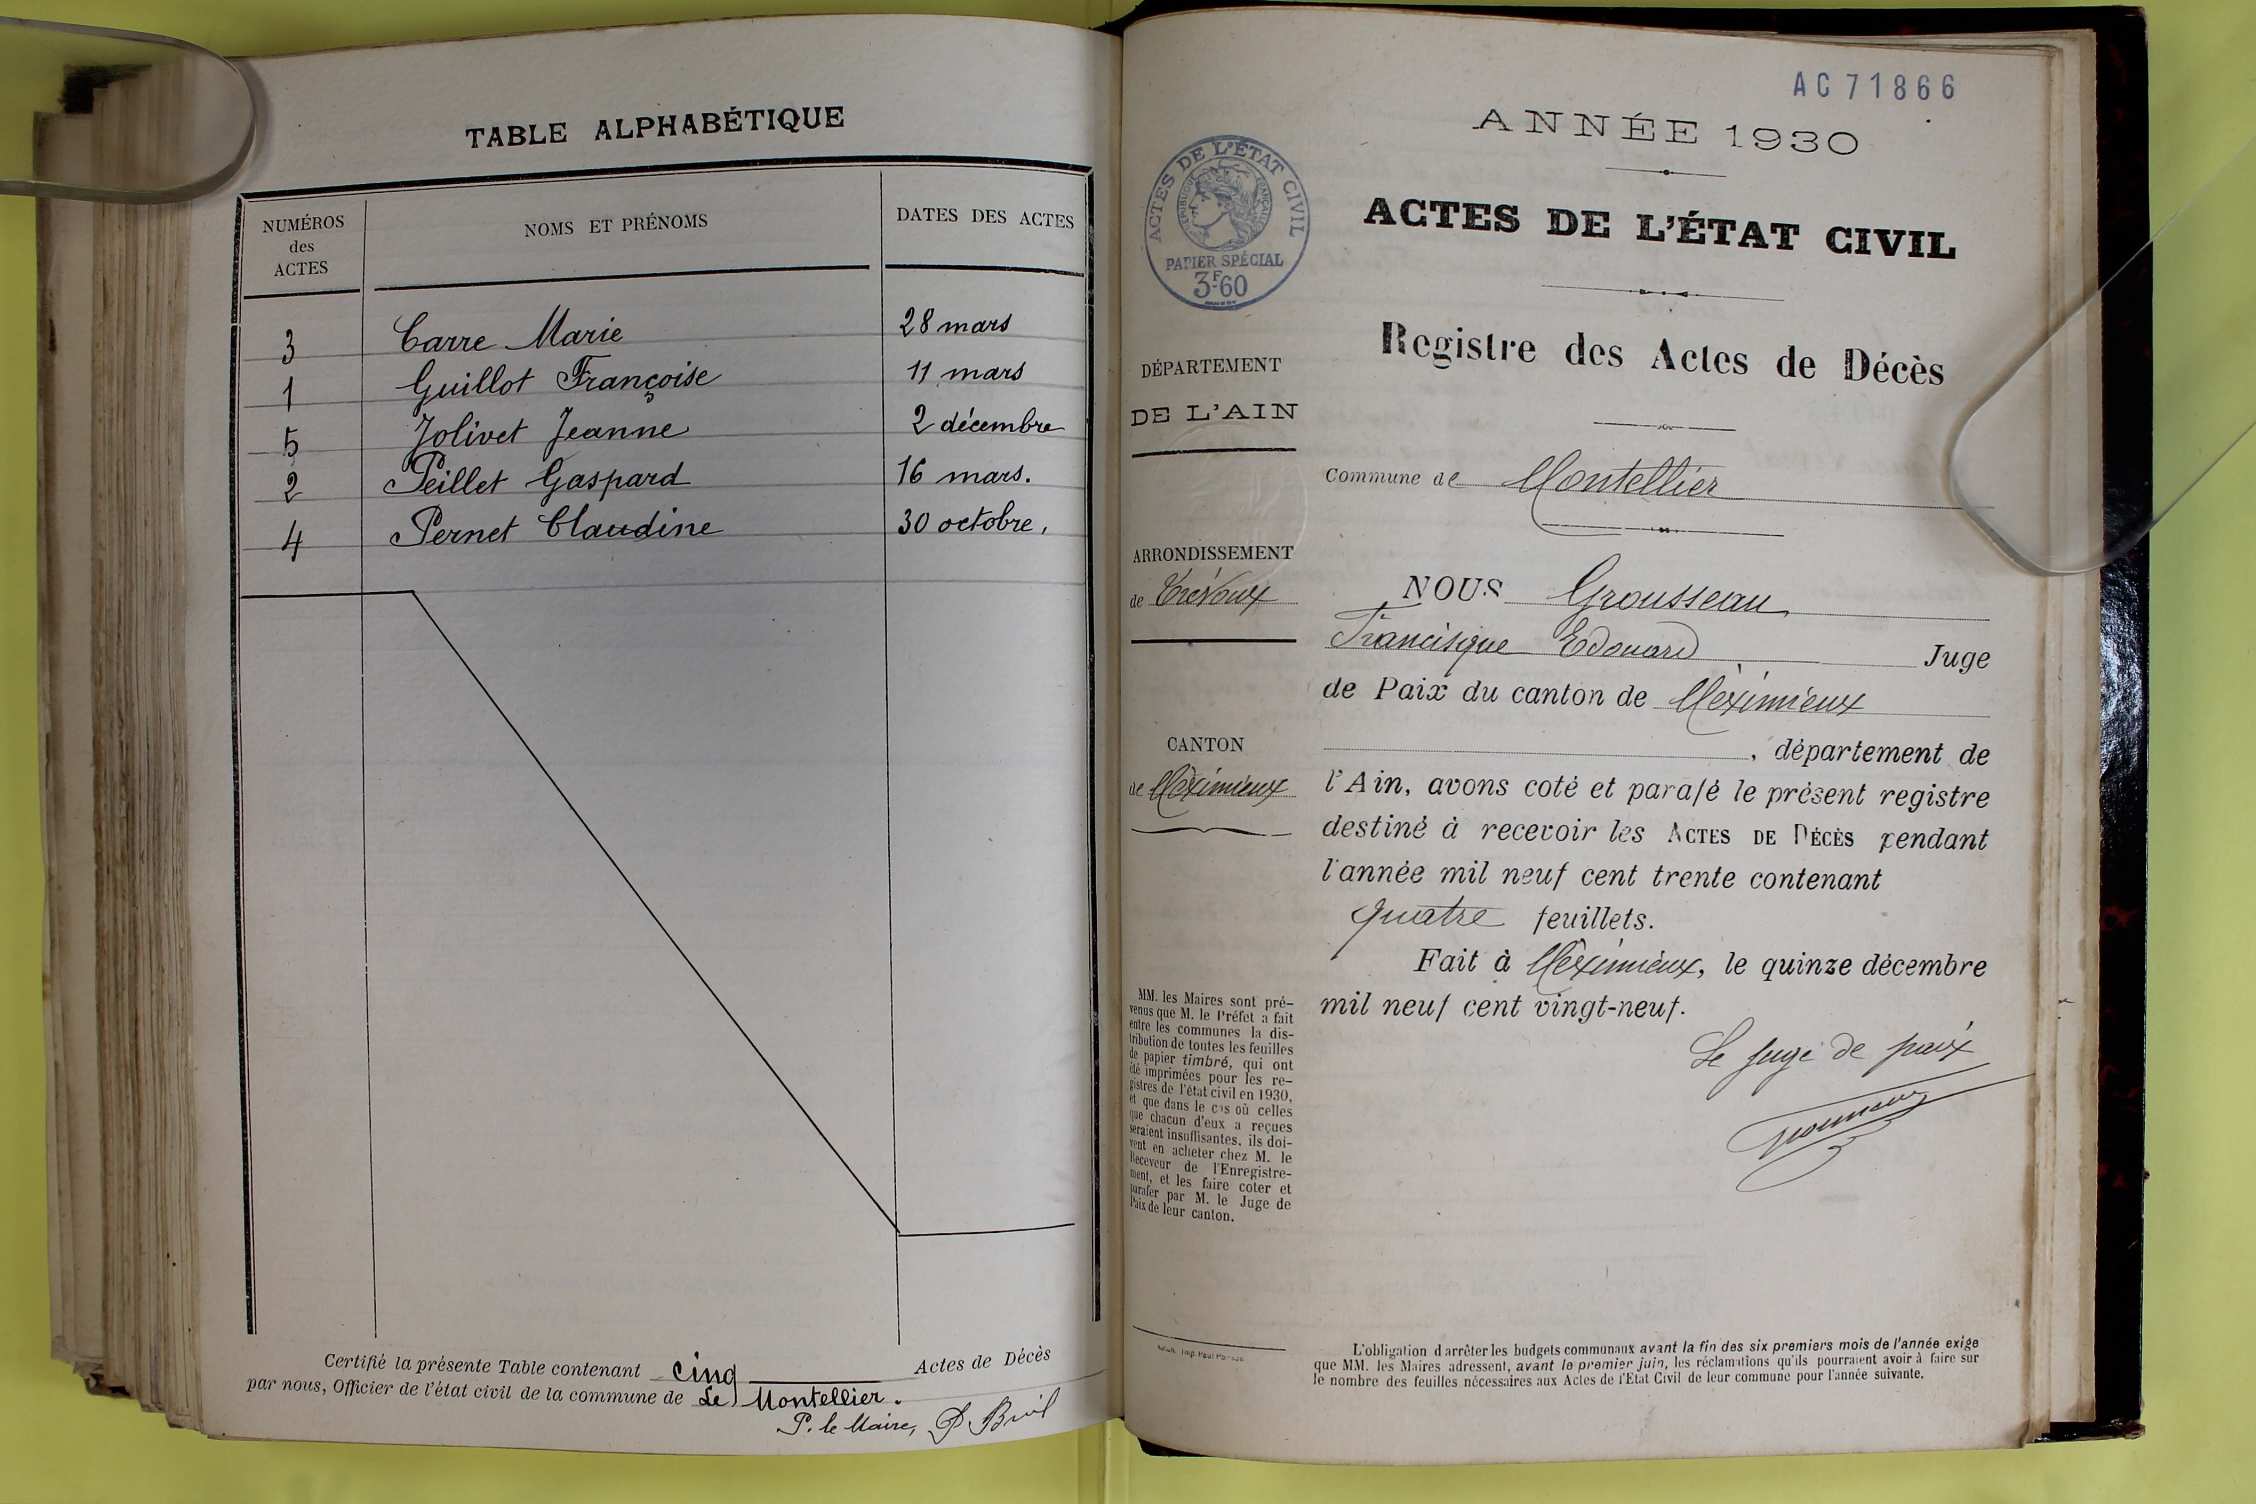 TABLE ALPHABÉTIQUE
NUMÉROS
des
ACTES
NOMS ET PRÉNOMS
DATES DES ACTES
3 Carre Marie 28 mars
1 Guillot Françoise 11 mars
5 Jolivet Jeanne 2 décembre
2 Peillet Gaspard 16 mars.
4 Pernet Claudine 30 octobre,
Certifié la présente Table contenant cinq Actes de Décès
par nous, Officier de l'état civil de la commune de Le Montellier.
P. le Maire, Buil
AC 71866
ANNÉE 1930
ACTES DE L'ÉTAT CIVIL
RÉPUBLIQUE FRANÇAISE
PAPIER SPÉCIAL
3F60
ACTES DE L'ÉTAT CIVIL
Registre des Actes de Décès
DÉPARTEMENT
DE L'AIN
Commune de Montellier
ARRONDISSEMENT
de Trévoux
CANTON
de Meximieux
NOUS Grousseau
Francisque Edouard Juge
de Paix du canton de Meximieux
, département de
l'Ain, avons coté et parafé le présent registre
destiné à recevoir les ACTES DE DÉCÈS pendant
l'année mil neuf cent trente contenant
quatre feuillets.
Fait à Meximieux, le quinze décembre
mil neuf cent vingt-neuf.
Le juge de paix
MM. les Maires sont pré-
venus que M. le Préfet a fait
entre les communes la dis-
tribution de toutes les feuilles
de papier timbré, qui ont
été imprimées pour les re-
gistres de l'état civil en 1930,
et que dans le cas où celles
que chacun d'eux a reçues
seraient insuffisantes, ils doi-
vent en acheter chez M. le
Receveur de l'Enregistre-
ment, et les faire coter et
parafer par M. le Juge de
Paix de leur canton.
L'obligation d'arrêter les budgets communaux avant la fin des six premiers mois de l'année exige
que MM. les Maires adressent, avant le premier juin, les réclamations qu'ils pourraient avoir à faire sur
le nombre des feuilles nécessaires aux Actes de l'Etat Civil de leur commune pour l'année suivante.